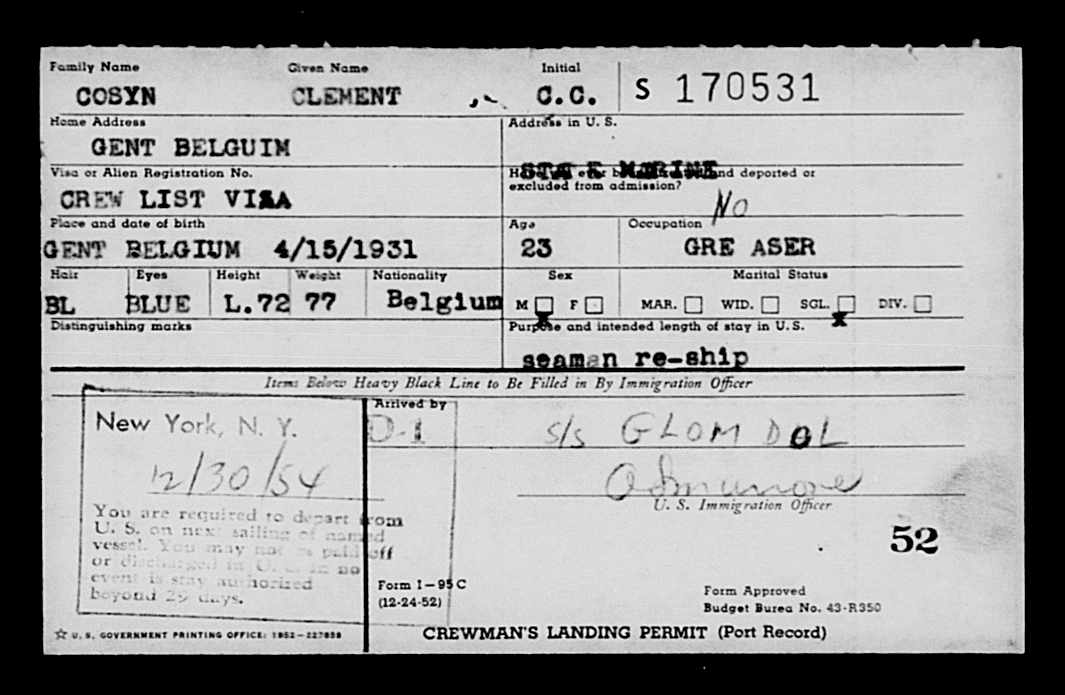 Family Name Given Name Initial
COSYN CLEMENT C.C. S 170531
Home Address Address in U. S.
GENT BELGUIM
STATE MARINE
Visa or Alien Registration No. deported or
excluded from admission?
CREW LIST VISA No
Place and date of birth Age Occupation
GENT BELGIUM 4/15/1931 23 GRE ASER
Hair Eyes Height Weight Nationality Sex Marital Status
BL BLUE L.72 77 Belgium M F MAR. WID. SGL. DIV.
x x
Distinguishing marks Purpose and intended length of stay in U.S.
seaman re-ship
Items Below Heavy Black Line to Be Filled in By Immigration Officer
Arrived by
New York, N. Y. D-1 s/s GLOMDAL
12/30/54
U. S. Immigration Officer
You are required to depart from
U. S. on next sailing of named
vessel. You may not be paid off
or discharged in U. S. In no
event is stay authorized
beyond 29 days.
52
Form I-95 C
(12-24-52)
Form Approved
Budget Bureau No. 43-R350
☆ U. S. GOVERNMENT PRINTING OFFICE: 1952-227858
CREWMAN'S LANDING PERMIT (Port Record)